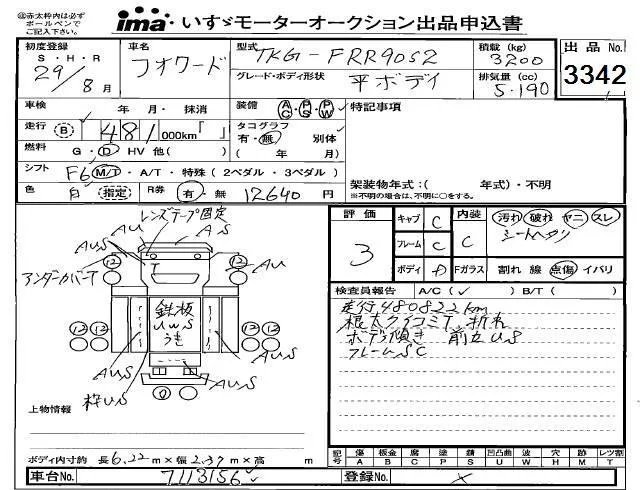 @赤太枠内は必ず
ボールペンで
ご記入下さい。
ima いすゞモーターオークション出品申込書
初度登録 車名 型式 積載(kg) 出品No.
S・H・R フォワード TKG-FRR90S2 3200 3342
29/8月 グレード・ボディ形状 平ボディ 排気量(cc) 5.190
車検 年・月・抹消 装備 AC PS PW 特記事項
走行 B 481,000km「 」 タコグラフ 有・無 別体
燃料 G・D・HV 他( ) ( 年 月)
シフト F6 M/T・A/T・特殊(2ペダル・3ペダル) 架装物年式:( 年式)・不明
色 白 指定 R券 有・無 12640円 ※不明の場合は、不明に○をする。
レンズテープ固定
AU AS
AUS AU
12 12
アンダーカバーT T
鉄板
UWS
うき
12 12 12 12
AUS AUS
AUS AUS
枠US
上物情報
ボディ内寸約 長6.22m×幅2.37m×高 m
評価 キャブ C 内装 汚れ 破れ ヤニ スレ
3 フレーム C C シートヘタリ
ボディ D Fガラス 割れ 線 点傷・イバリ
検査員報告 A/C(✓) B/T( )
走行480822km
根太クイコミT、折れ
ボデー傾き 前立US
フレームSC
記号 傷 板金 腐 塗 錆 凹凸曲 波 穴 跡 レンツ割
A B C P S U W H M T
車台No. 7113156 登録No.